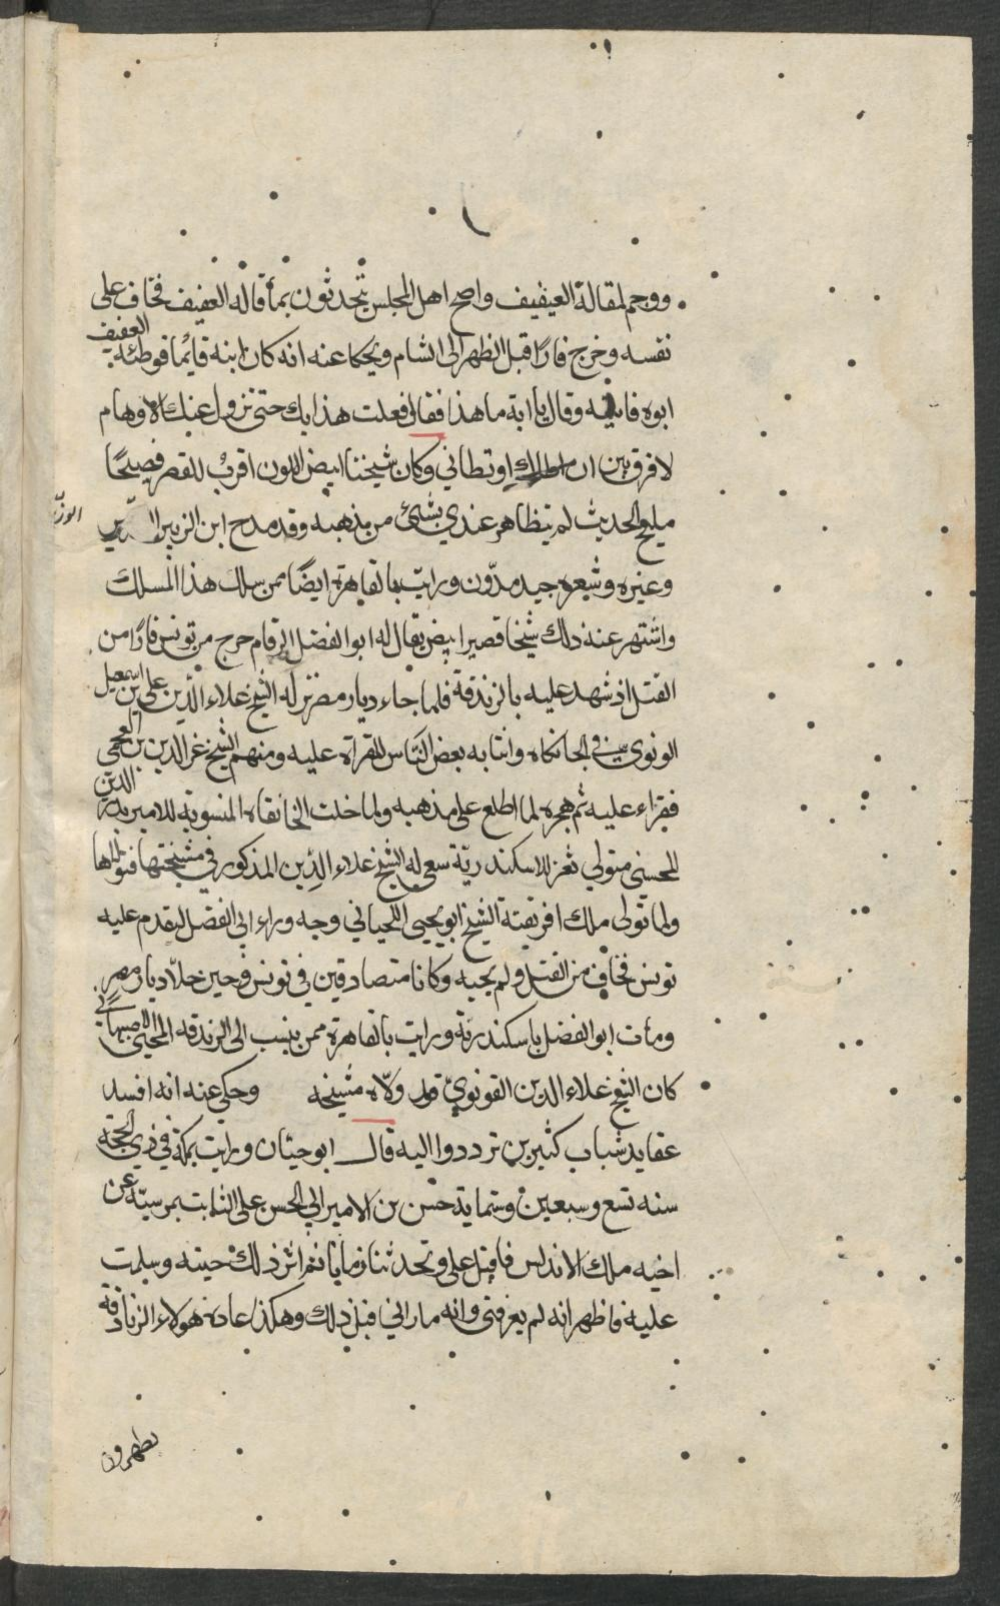 ووجم لمقالة العيفيف واصح اهل المجلس يتحدثون بما قاله العفيف فخاف على
نفسه وخرج فارًا قبل الظهر الى الشام ويحكا عنه انه كان ابنه قايمًا فوطئه العفيف
ابوه وقال يا ابة ما هذا فقال فعلت هذا بك حتى تزول عنك الاوهام
لا فرق بين ان اوتطاني وكان شيخنا ابيض اللون اقرب للقصر فصيحًا
مليح الحديث لم يتظاهر عندي بشئ من مذهبه وقد مدح ابن الزبير الوزير
وغيره وشعره جيد مدّون ورايت بالقاهرة ايضًا ممن سلك هذا المسلك
واشتهر عنه ذلك شيخا قصيرا ابيض يقال له ابو الفضل الرقام خرج من تونس فارًا من
القتل اذ شهد عليه بالزندقة فلما جاء ديار مصر نزله الشيخ علاء الدين على بن اسمعيل
الونوي في الخانكاه وانتابه بعض الناس للقراة عليه ومنهم الشيخ عز الدين بن العجمي
فقراء عليه ثم هجره لما اطلع على مذهبه ولما خلت الخانقاه المنسوبة للامير الدين
المحسني متولي ثغر للاسكندرية سعى له الشيخ علاء الدين المذكور في مشيختها فتولاها
ولما تولى ملك افريقية الشيخ ابو يحيى اللحياني وجه وراء ابي الفضل ليقدم عليه
تونس فخاف من القتل ولم يجبه وكانا متصادقين في تونس فحين حلّا ديار مصر
ومات ابو الفضل باسكندرية ورايت بالقاهرة ممن ينسب الى الزندقه الاصبهاني
كان الشيخ علاء الدين القونوي قد ولّاه مشيخه وحكي عنه انه افسد
عقايد شباب كثيرين ترددوا اليه قال ابو حيان ورايت بمكة في ذي الحجة
سنه تسع وسبعين وستماية حسن بن الامير ابي الحسن على الثابت بمرسيّة عن
اخيه ملك الاندلس فاقبل على وتحدثنا زمانا ثم اثر ذلك جيته وسلمت
عليه فاظهر انه لم يعرفني وانه ما راني قبل ذلك وهكذا عادة هولاء الزنادقة
يظهرون